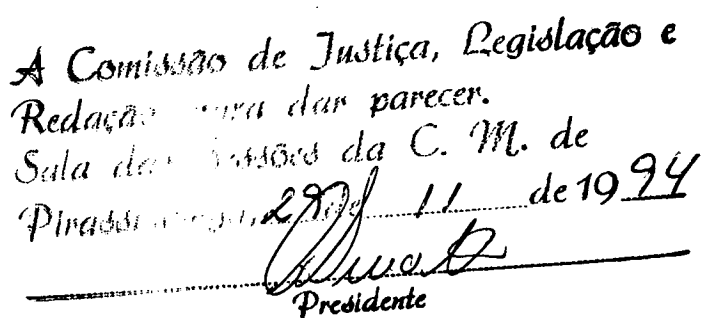 A Comissão de Justiça, Legislação e
Redação para dar parecer.
Sala das Sessões da C. M. de
de 11 de 19 94
Presidente